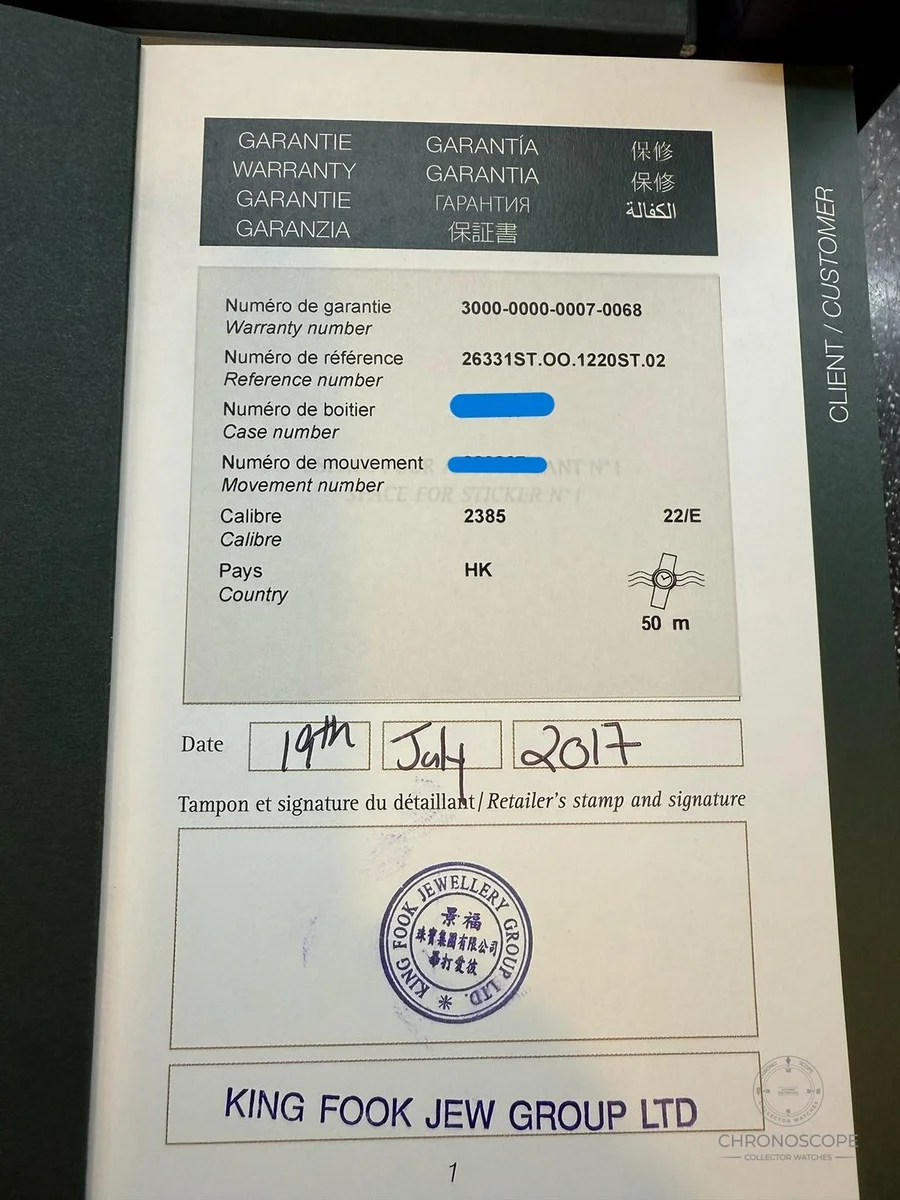 GARANTIE GARANTÍA 保修
WARRANTY GARANTIA 保修
GARANTIE ГАРАНТИЯ الكفالة
GARANZIA 保証書
CLIENT / CUSTOMER
Numéro de garantie 3000-0000-0007-0068
Warranty number
Numéro de référence 26331ST.OO.1220ST.02
Reference number
Numéro de boitier
Case number
Numéro de mouvement
Movement number
SPACE FOR STICKER N°1
Calibre 2385 22/E
Calibre
Pays HK
Country
50 m
Date 19th July 2017
Tampon et signature du détaillant / Retailer's stamp and signature
KING FOOK JEWELLERY GROUP LTD.
景福
珠寶集團有限公司
KING FOOK JEW GROUP LTD
1
CHRONOSCOPE
COLLECTOR WATCHES